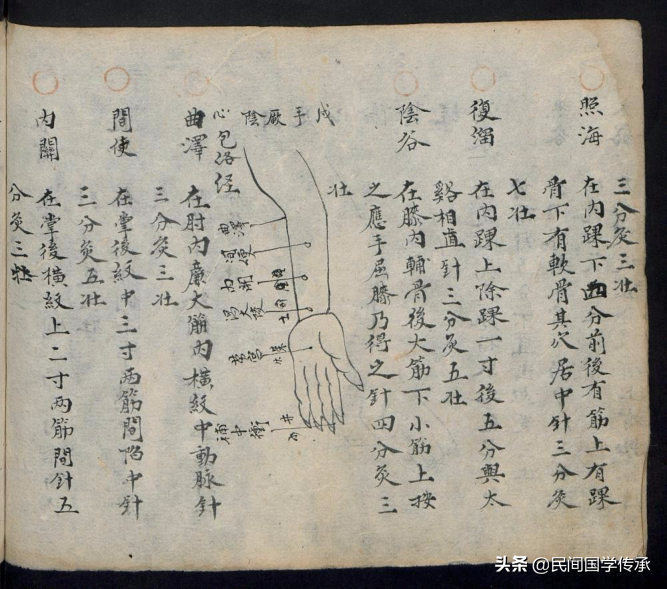 三分灸三壯
照海 在內踝下四分前後有筋上有踝
骨下有軟骨其穴居中針三分灸
七壯
復溜 在內踝上除踝一寸後五分與太
谿相直針三分灸五壯
陰谷 在膝內輔骨後大筋下小筋上按
之應手屈膝乃得之針四分灸三
壯
戌手厥陰
心包洛经
曲澤
內關
瀉大陵
土
勞宮
井
補中衝
曲澤 在肘內廉大筋內横紋中動脉針
三分灸三壯
間使 在掌後紋中三寸两筋間陷中針
三分灸五壯
內關 在掌後横紋上二寸两筋間針五
分灸三壯
头条 @民间国学传承